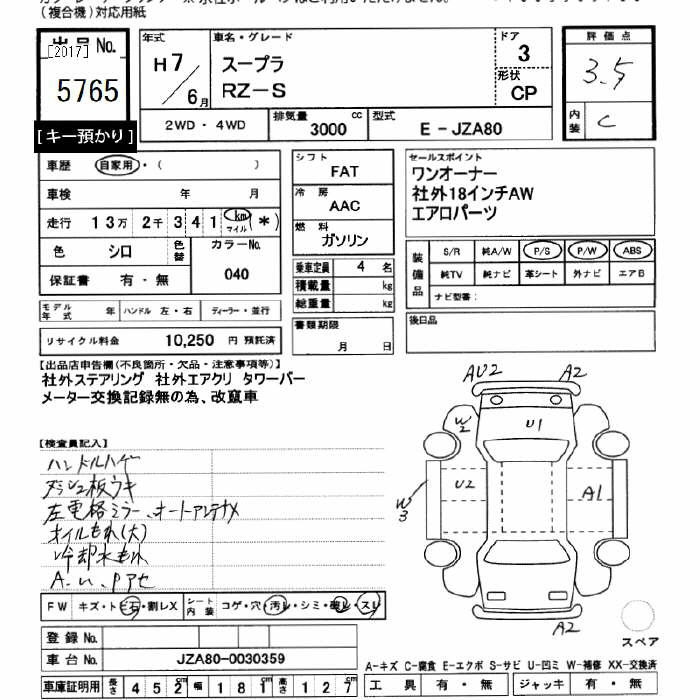 (複合機)対応用紙
出品No.
[2017]
5765
[キー預かり]
年式 H7/6月
車名・グレード
スープラ
RZ-S
ドア 3
形状 CP
2WD・4WD
排気量 3000 cc
型式 E-JZA80
評価点
3.5
内装 C
車歴 自家用・( )
車検 年 月
走行 13万2千341km マイル(*)
色 シロ 色替 カラーNo. 040
保証書 有・無
モデル年式 年 ハンドル 左・右 ディーラー・並行
リサイクル料金 10,250 円 預託済
シフト
FAT
冷房
AAC
燃料
ガソリン
乗車定員 4 名
積載量 kg
総重量 kg
書類期限
月 日
セールスポイント
ワンオーナー
社外18インチAW
エアロパーツ
装備品
S/R 純A/W P/S P/W ABS
純TV 純ナビ 革シート 外ナビ エアB
ナビ型番:
後日品
【出品店申告欄(不良箇所・欠品・注意事項等)】
社外ステアリング 社外エアクリ タワーバー
メーター交換記録無の為、改竄車
【検査員記入】
ハンドルハゲ
ダッシュ板ウキ
左電格ミラー、オートアンテナメ
オイルもれ(大)
冷却水もれ
A.u.Pアセ
FW キズ・トビ石・割レX シート内装 コゲ・穴・汚レ・シミ・破レ・スレ
登録No.
車台No. JZA80-0030359
車庫証明用 長さ 452cm 幅 181cm 高さ 127cm
AU2 A2
W2
U1
U2
A1
W3
A2
スペア
A-キズ C-腐食 E-エクボ S-サビ U-凹ミ W-補修 XX-交換済
工具 有・無 ジャッキ 有・無